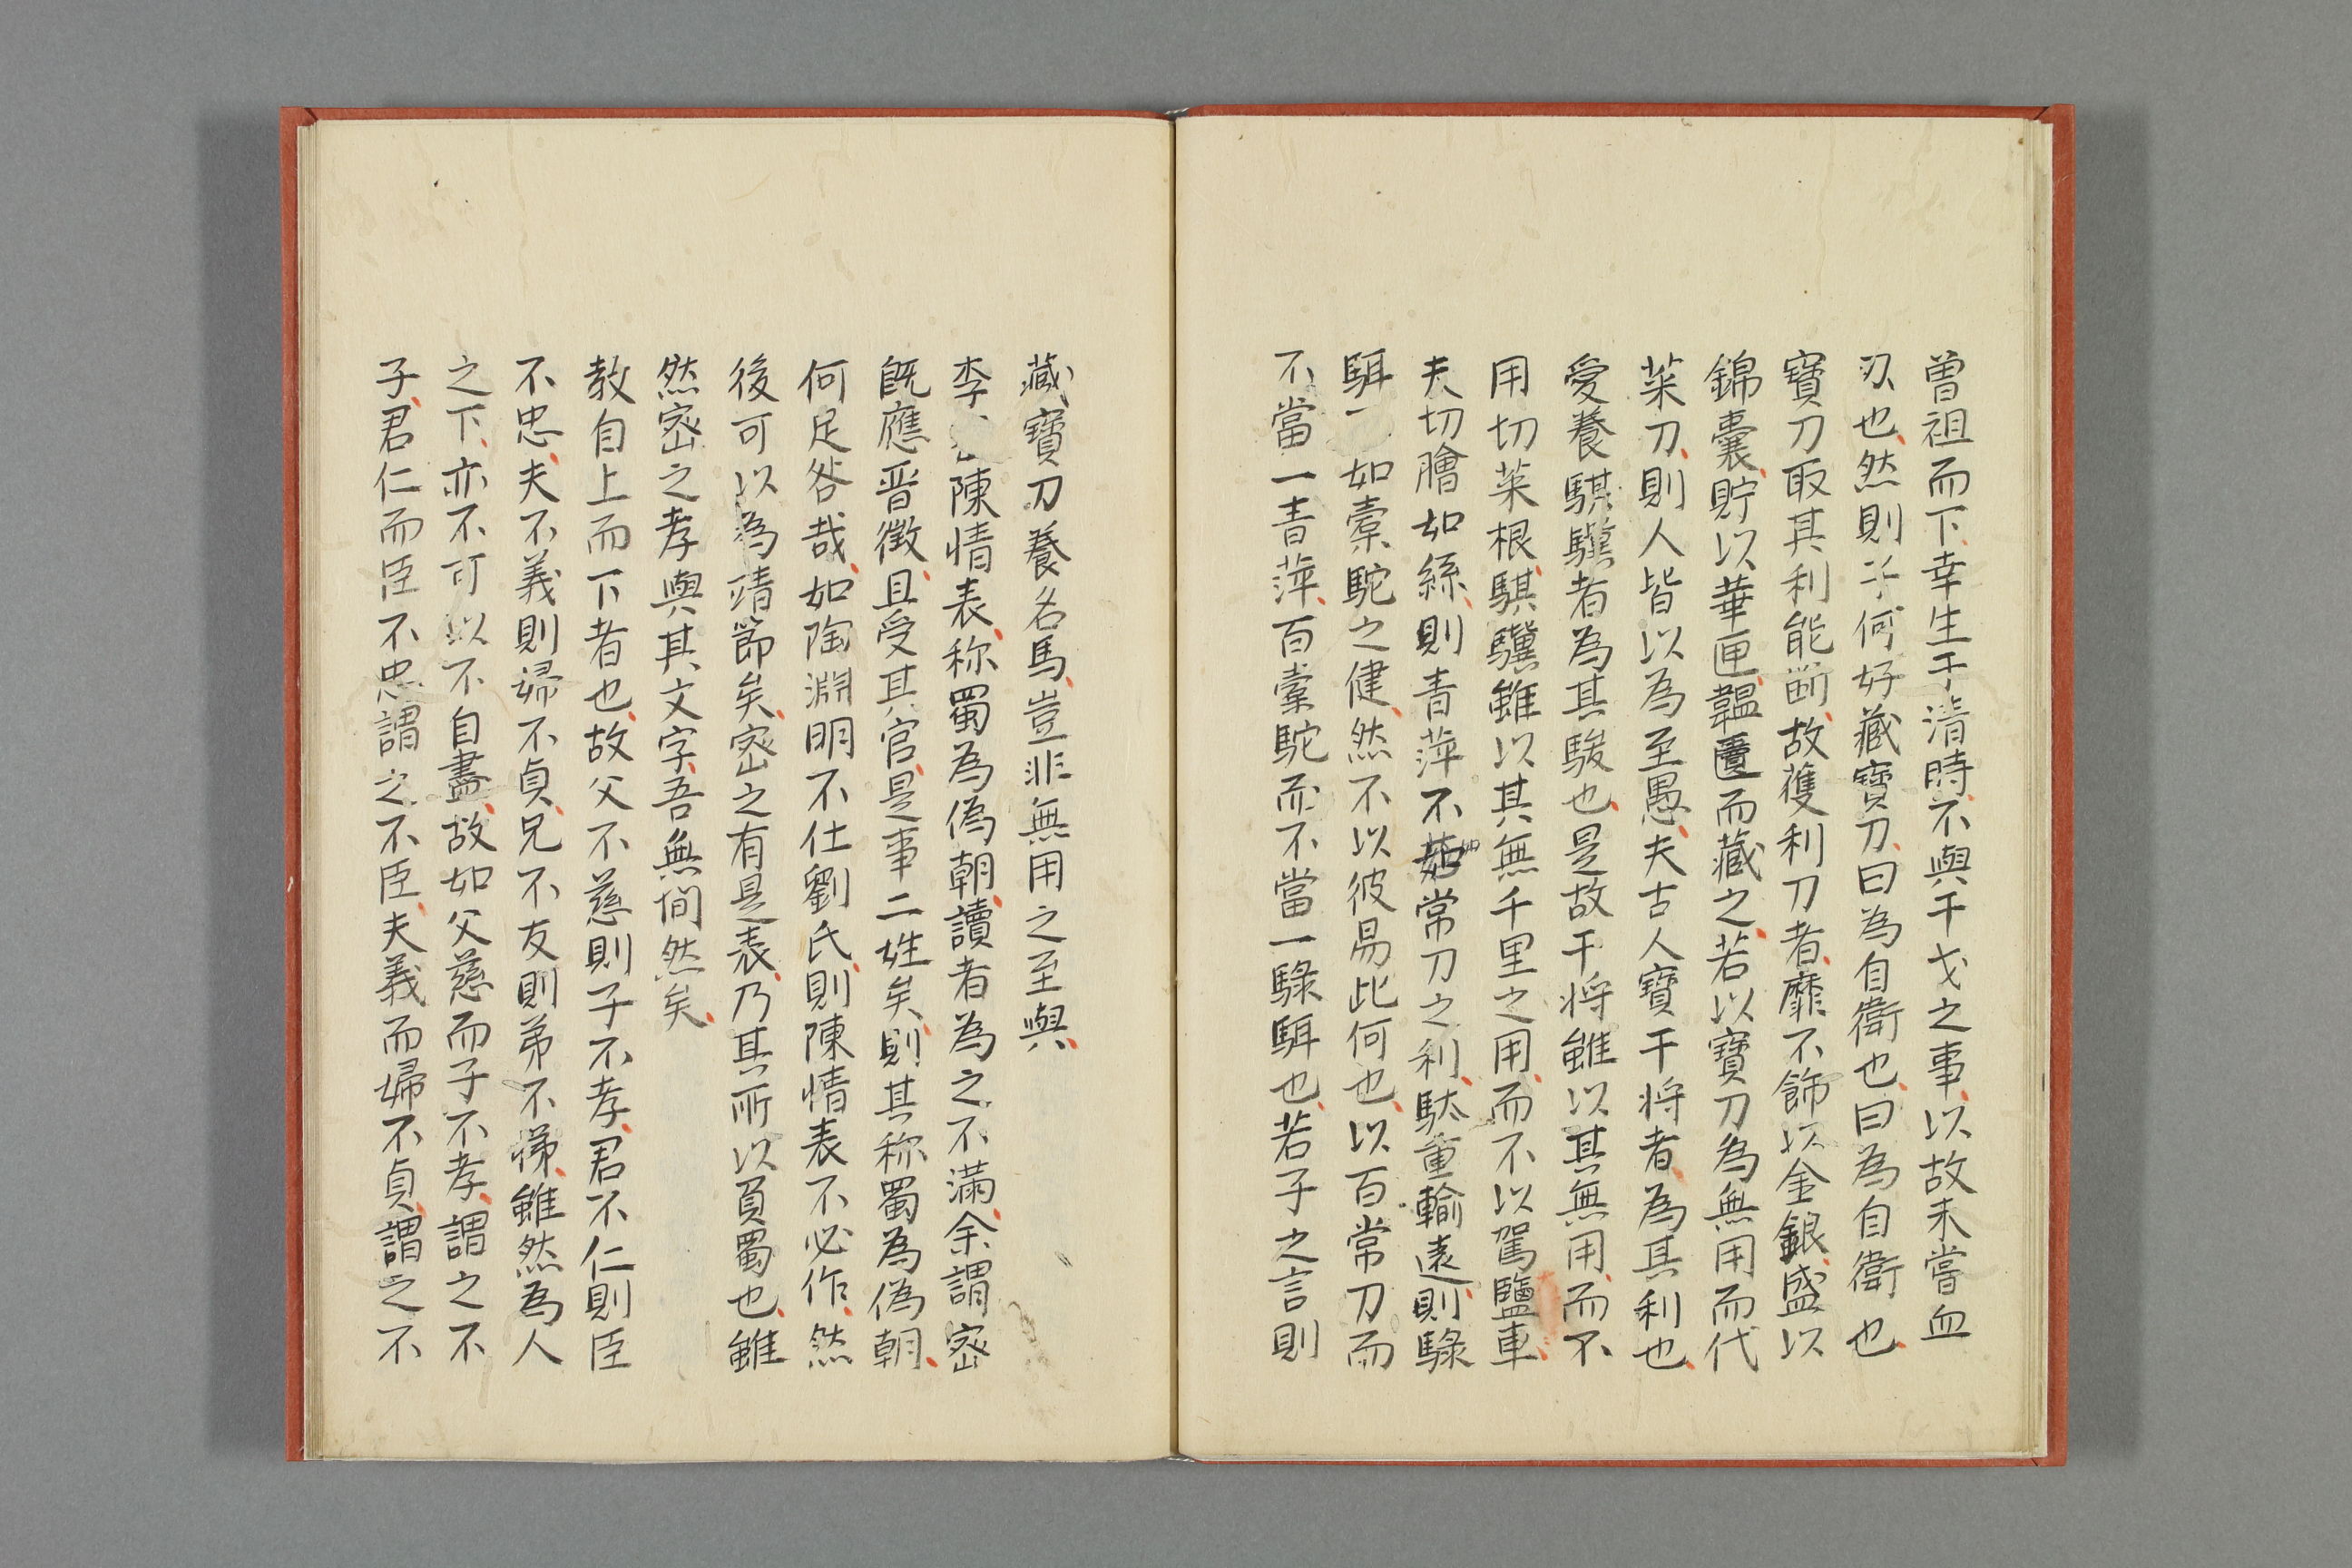 曽祖而下幸生于清時不與干戈之事以故未嘗血
刃也然則子何好藏寶刀曰為自衛也曰為自衛也
寶刀取其利能断故獲利刀者靡不飾以金銀盛以
錦囊貯以華匣韞匵而藏之若以寶刀為無用而代
菜刀則人皆以為至愚夫古人寶干将者為其利也
愛養騏驥者為其駿也是故干将雖以其無用而不
用切菜根騏驥雖以其無千里之用而不以駕鹽車
夫切膾如絲則青萍不如常刀之利駄重輸遠則騄
駬如橐駝之健然不以彼易此何也以百常刀而
不當一青萍百橐駝而不當一騄駬也若子之言則
藏寶刀養名馬豈非無用之至與
李陳情表称蜀為偽朝讀者為之不滿余謂密
既應晋徵且受其官是事二姓矣則其称蜀為偽朝
何足咎哉如陶淵明不仕劉氏則陳情表不必作然
後可以為靖節矣密之有是表乃其所以負蜀也雖
然密之孝與其文字吾無間然矣
教自上而下者也故父不慈則子不孝君不仁則臣
不忠夫不義則婦不貞兄不友則弟不悌雖然為人
之下亦不可以不自盡故如父慈而子不孝謂之不
子君仁而臣不忠謂之不臣夫義而婦不貞謂之不